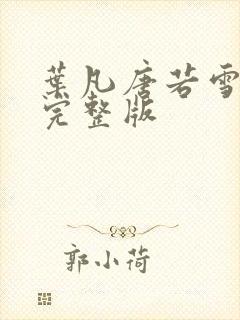 葉凡唐若雪
完整版
郭小荷